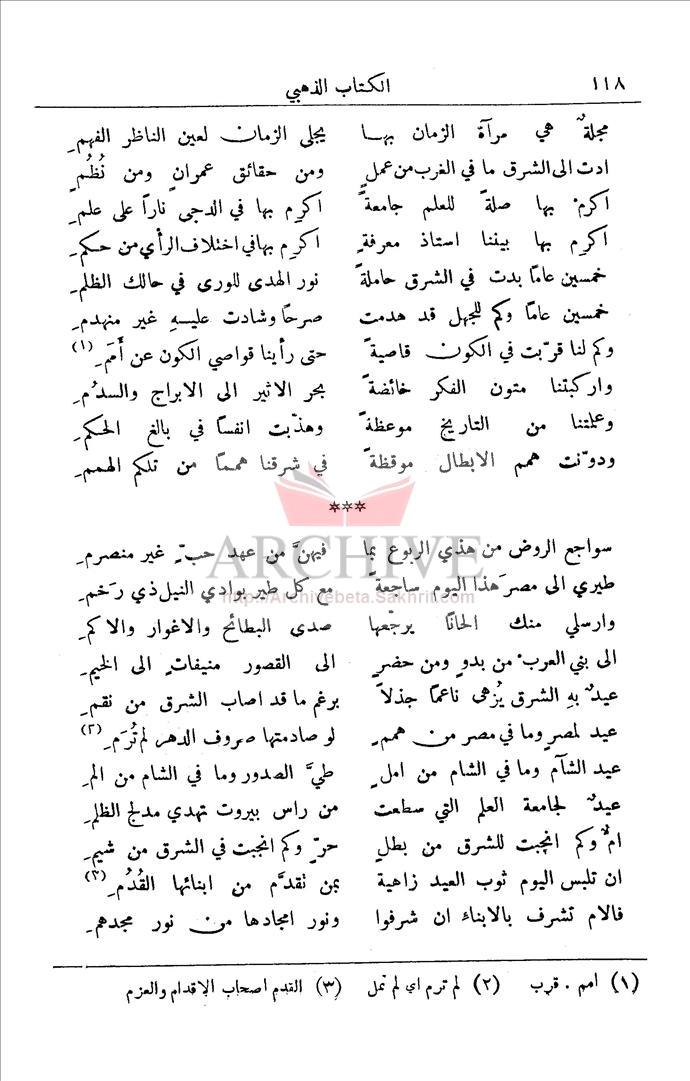 ١١٨ الكتاب الذهبي
مجلةٌ هي مرآة الزمان بها يجلى الزمان لعين الناظر الفهمِ
ادت الى الشرق ما في الغرب من عملٍ ومن حقائق عمرانٍ ومن نُظُمٍ
اكرمْ بها صلةً للعلم جامعةً اكرِم بها في الدجى ناراً على علمِ
اكرِم بها بيننا استاذ معرفةٍ اكرِم بها في اختلاف الرأي من حكمِ
خمسين عاماً بدت في الشرق حاملةً نور الهدى للورى في حالك الظلمِ
خمسين عاماً وكم للجهل قد هدمت صرحاً وشادت عليهِ غير منهدمِ
وكم لنا قرّبت في الكون قاصيةً حتى رأينا قواصي الكون عن أَمَمِ (١)
واركبتنا متون الفكر خائضةً بحر الاثير الى الابراج والسدُمِ
وعلمتنا من التاريخ موعظةً وهذّبت انفساً في بالغ الحكمِ
ودوّنت همم الابطال موقظةً في شرقنا همماً من تلكم الهممِ
***
سواجع الروض من هذي الربوع بما فيهنَّ من عهد حبٍّ غير منصرمِ
طيري الى مصرَ هذا اليوم ساجعةً مع كل طير بوادي النيل ذي رَخَمِ
وارسلي منك الحاناً يرجّعها صدى البطائح والاغوار والاكمِ
الى بني العرب من بدوٍ ومن حضرٍ الى القصور منيفاتٍ الى الخيمِ
عيدٌ بهِ الشرق يُزهى ناعماً جذلاً برغم ما قد اصاب الشرق من نقمِ
عيد لمصرٍ وما في مصر من هممٍ لو صادمتها صروف الدهر لم تُرَمِ (٢)
عيد الشآم وما في الشام من املٍ طيَّ الصدور وما في الشام من المِ
عيدٌ لجامعة العلم التي سطعت من راس بيروت تهدي مدلج الظلمِ
امٌّ وكم انجبت للشرق من بطلٍ حرٍّ وكم انجبت في الشرق من شيمِ
ان تلبس اليوم ثوب العيد زاهية بمن تقدَّم من ابنائها القُدُمِ (٣)
فالام تشرف بالابناء ان شرفوا ونور امجادها من نور مجدهمِ
(١) امم . قرب (٢) لم ترم اي لم تمل (٣) القدم اصحاب الاقدام والعزم
ARCHIVE
http://Archivebeta.Sakhrit.com